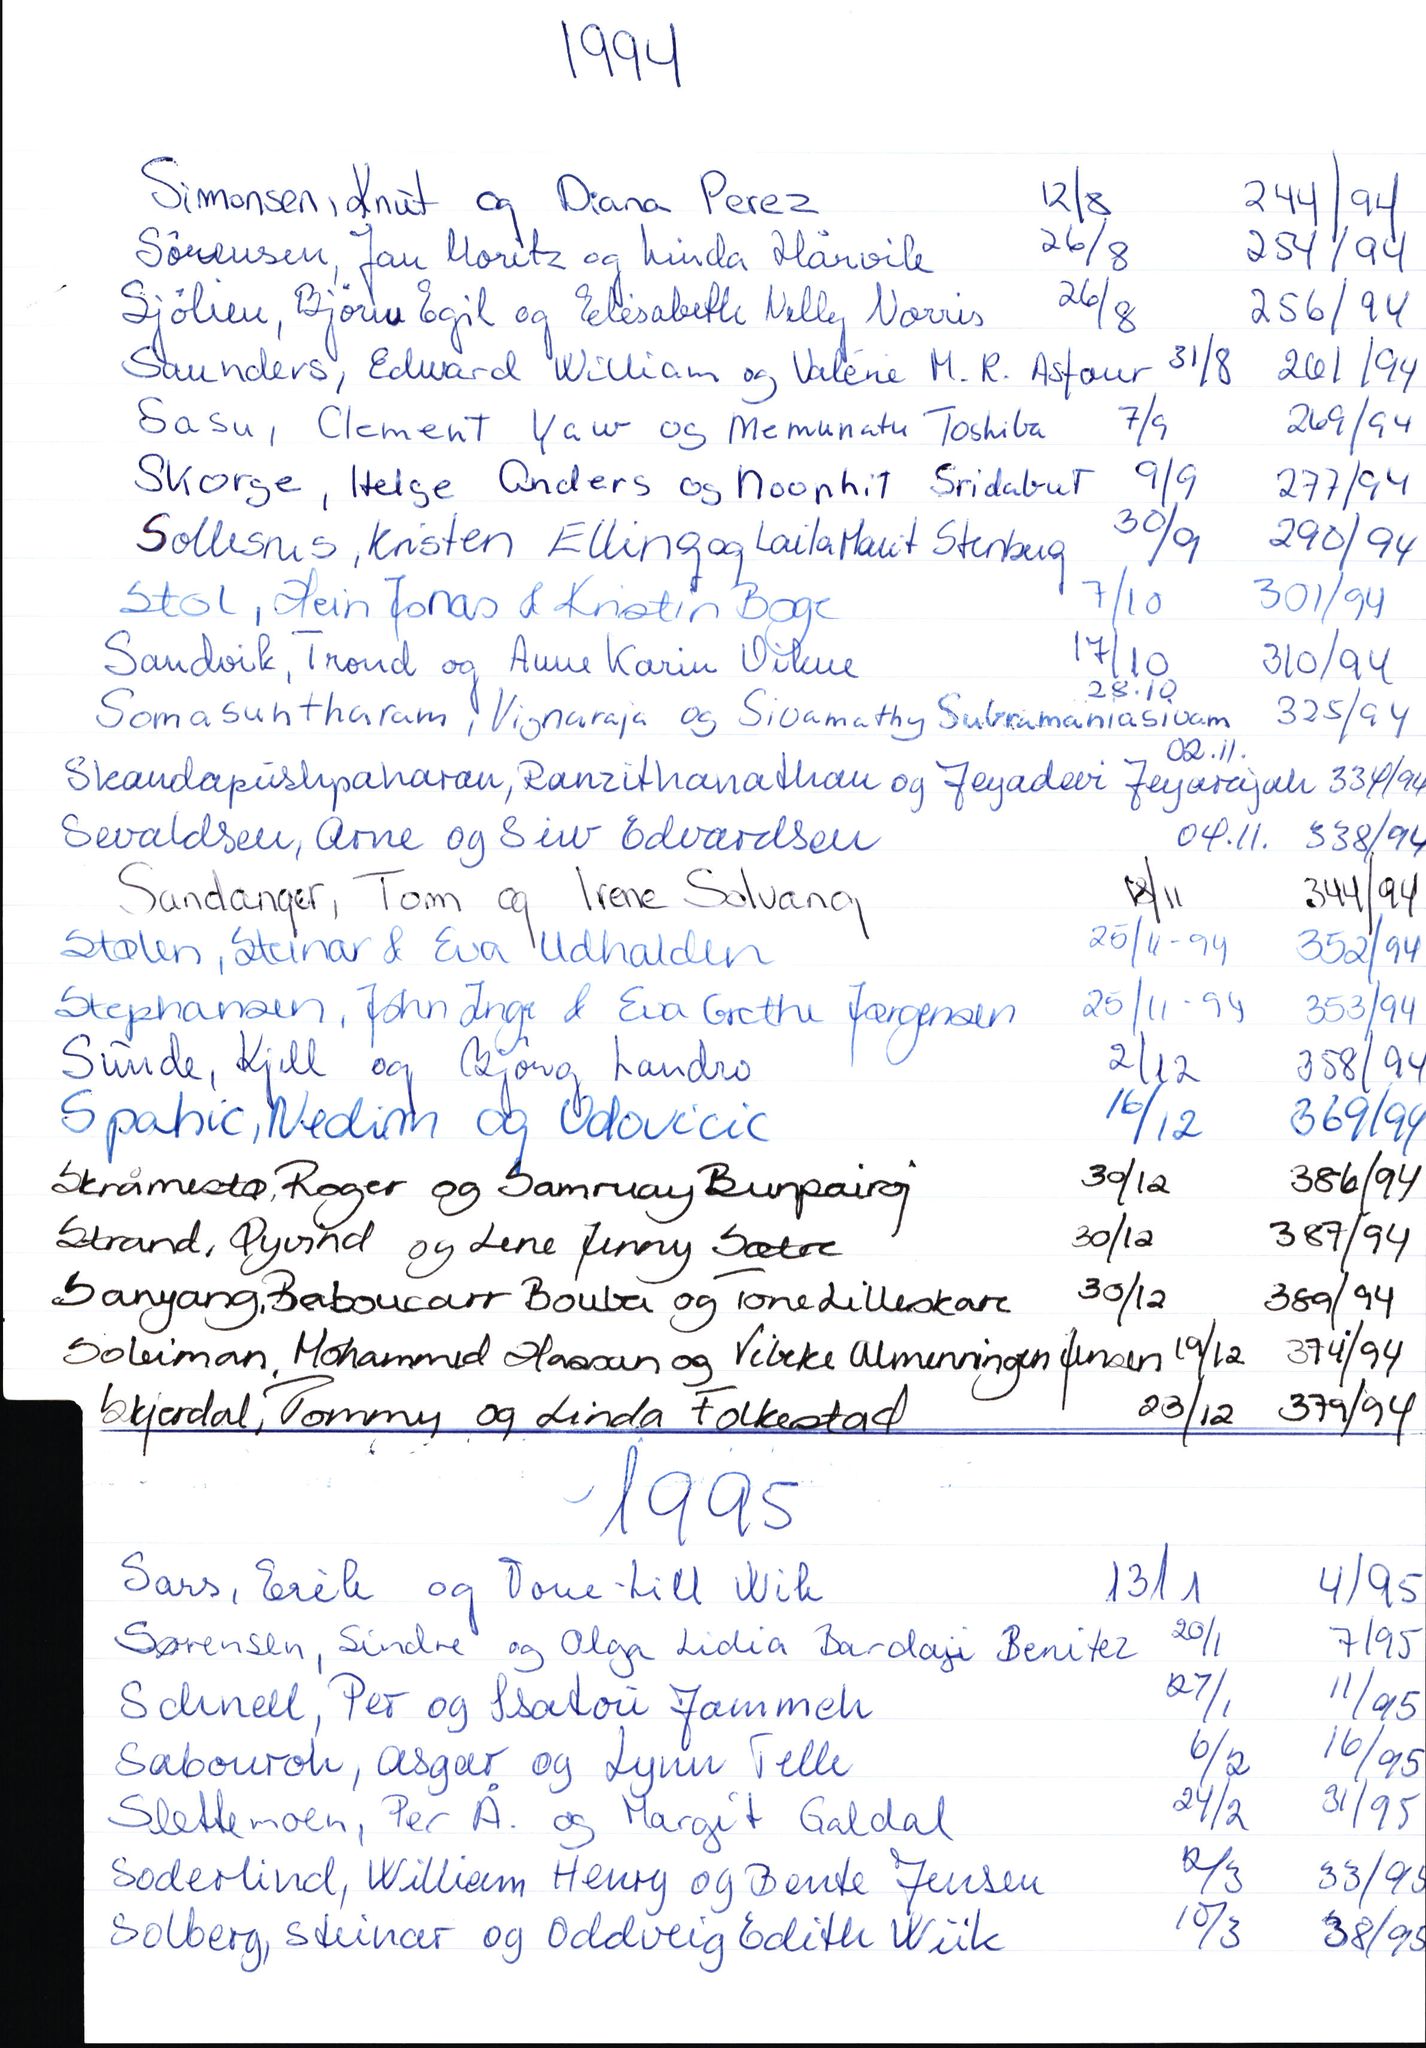 1994
Simonsen, Knut og Diana Perez 12/8 244/94
Sörensen, Jan Moritz og Linda Hårvik 26/8 254/94
Sjölien, Björn Egil og Elisabeth Nelly Norris 26/8 256/94
Saunders, Edward William og Valérie M. R. Asfour 31/8 261/94
Sasu, Clement Yaw og Memunatu Toshiba 7/9 269/94
Skorge, Helge Anders og Noophit Sridabut 9/9 277/94
Sollesnes, Kristen Elling og Laila Marit Stenberg 30/9 290/94
Stol, Hein Jonas & Kristin Boge 7/10 301/94
Sandvik, Trond og Anne Karin Vikne 17/10 310/94
Somasuntharam, Vignaraja og Sivamathy Subramaniasivam 28.10 325/94
Skandapushpaharan, Ranzithanathan og Jeyadevi Jeyarajah 02.11. 334/94
Sevaldsen, Arne og Siw Edvardsen 04.11. 338/94
Sandanger, Tom og Irene Solvang 18/11 344/94
Stølen, Steinar & Eva Udhalden 25/11-94 352/94
Stephansen, John Inge & Eva Grethe Jørgensen 25/11-94 353/94
Sunde, Kjell og Björg Landro 2/12 358/94
Spahic, Nedim og Udovicic 16/12 369/94
Skråmestø, Roger og Samruay Bunpairoj 30/12 386/94
Strand, Øyvind og Lene Jenny Sætre 30/12 387/94
Sanyang, Baboucarr Bouba og Tone Lilleskare 30/12 389/94
Soleiman, Mohammed Hassan og Vibeke Almenningen Jensen 19/12 374/94
Skjerdal, Tommy og Linda Folkestad 23/12 379/94
1995
Sars, Erik og Tone-Lill Wik 13/1 4/95
Sørensen, Sindre og Olga Lidia Bardaji Benitez 20/1 7/95
Schnell, Per og Isatou Jammeh 27/1 11/95
Sabouroh, Asgar og Lynn Telle 6/2 16/95
Slettemoen, Per Å. og Margit Galdal 24/2 31/95
Soderlind, William Henry og Bente Jensen 2/3 33/95
Solberg, Steinar og Oddveig Edith Wiik 10/3 38/95